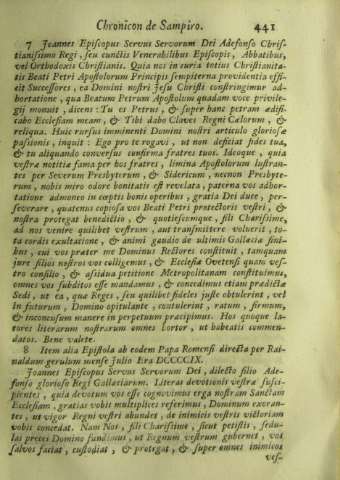 Chronicon de Sampiro. 441
7 Joannes Episcopus Servus Servorum Dei Adefonso Chris-
tianissimo Regi, seu cunctis Venerabilibus Episcopis, Abbatibus,
vel Orthodoxis Christianis. Quia nos in curia totius Christianita-
tis Beati Petri Apostolorum Principis sempiterna providentia effi-
cit Successores, ea Domini nostri Jesu Christi constringimur ad-
hortatione, qua Beatum Petrum Apostolum quadam voce privile-
gii monuit, dicens: Tu es Petrus, & super hanc petram ædifi-
cabo Ecclesiam meam, & Tibi dabo Claves Regni Cælorum, &
reliqua. Huic rursus imminenti Domini nostri articulo gloriosæ
passionis, inquit: Ego pro te rogavi, ut non deficiat fides tua,
& tu aliquando conversus confirma fratres tuos. Ideoque, quia
vestræ notitiæ fama per hos fratres, limina Apostolorum lustran-
tes per Severum Presbyterum, & Sidericum, necnon Presbyte-
rum, nobis miro odore bonitatis est revelata, paterna vos adhor-
tatione admoneo in cæptis bonis operibus, gratia Dei dute, per-
severare, quatenus copiosa vos Beati Petri protectoris vestri, &
nostra protegat benedictio, & quotiescumque, fili Charissime,
ad nos venire quilibet vestrum, aut transmittere voluerit, to-
ta cordis exultatione, & animi gaudio de ultimis Gallæciæ fini-
bus, cui vos præter me Dominus Rectores constituit, tamquam
jure filios nostros vos colligemus, & Ecclesiæ Ovetensi quam ves-
tro consilio, & assidua petitione Metropolitanam constituimus,
omnes vos subditos esse mandamus, & concedimus etiam prædictæ
Sedi, ut ea, quæ Reges, seu quilibet fideles juste obtulerint, vel
in futurum, Domino opitulante, contulerint, ratum, firmum,
& inconcusum manere in perpetuum præcipimus. Hos quoque la-
tores literarum nostrarum omnes hortor, ut habeatis commen-
datos. Bene valete.
8 Item alia Epistola ab eodem Papa Romensi directa per Rai-
naldum gerulum mense Julio Era DCCCCIX.
Joannes Episcopus Servus Servorum Dei, dilecto filio Ade-
fonso glorioso Regi Gallæciarum. Literas devotionis vestræ susci-
pientes, quia devotum vos esse cognovimus erga nostram Sanctam
Ecclesiam, gratias vobis multiplices referimus, Dominum exoran-
tes, ut vigor Regni vestri abundet, de inimicis vestris victoriam
vobis concedat. Nam Nos, fili Charissime, sicut petistis, sedu-
las preces Domino fundimus, ut Regnum vestrum gubernet, vos
salvos faciat, custodiat, & protegat, & super omnes inimicos
ves-